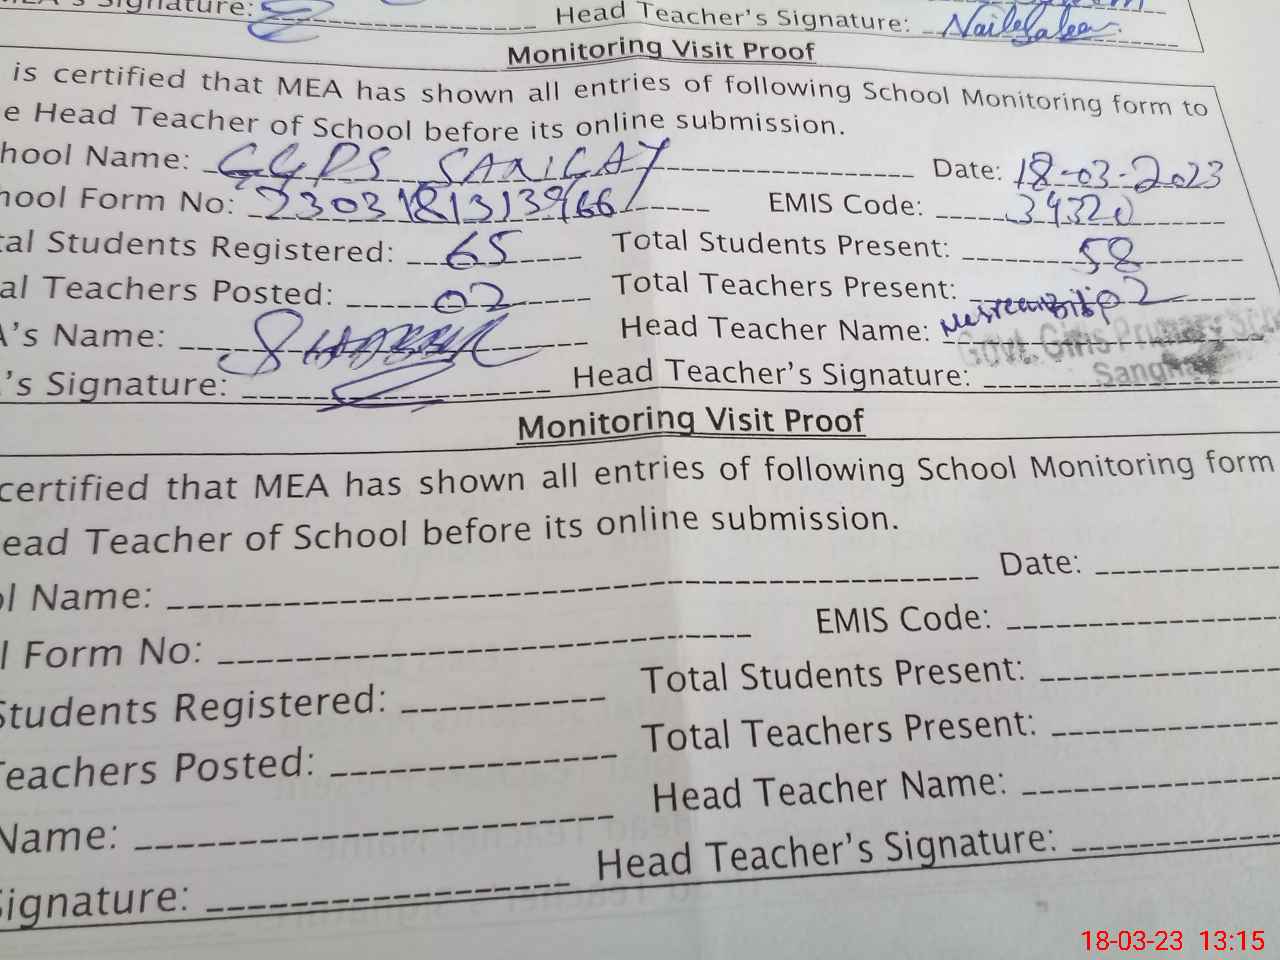 Signature: Head Teacher's Signature:
Monitoring Visit Proof
is certified that MEA has shown all entries of following School Monitoring form to
e Head Teacher of School before its online submission.
hool Name: GGPS SANIGAY Date: 18-03-2023
hool Form No: EMIS Code: 34320
tal Students Registered: 65 Total Students Present: 58
al Teachers Posted: 02 Total Teachers Present: 02
A's Name: Head Teacher Name:
Govt. Girls Primary
's Signature: Head Teacher's Signature:
Monitoring Visit Proof
certified that MEA has shown all entries of following School Monitoring form
ead Teacher of School before its online submission.
ol Name: Date:
l Form No: EMIS Code:
Students Registered: Total Students Present:
Teachers Posted: Total Teachers Present:
Name: Head Teacher Name:
Signature: Head Teacher's Signature:
18-03-23 13:15